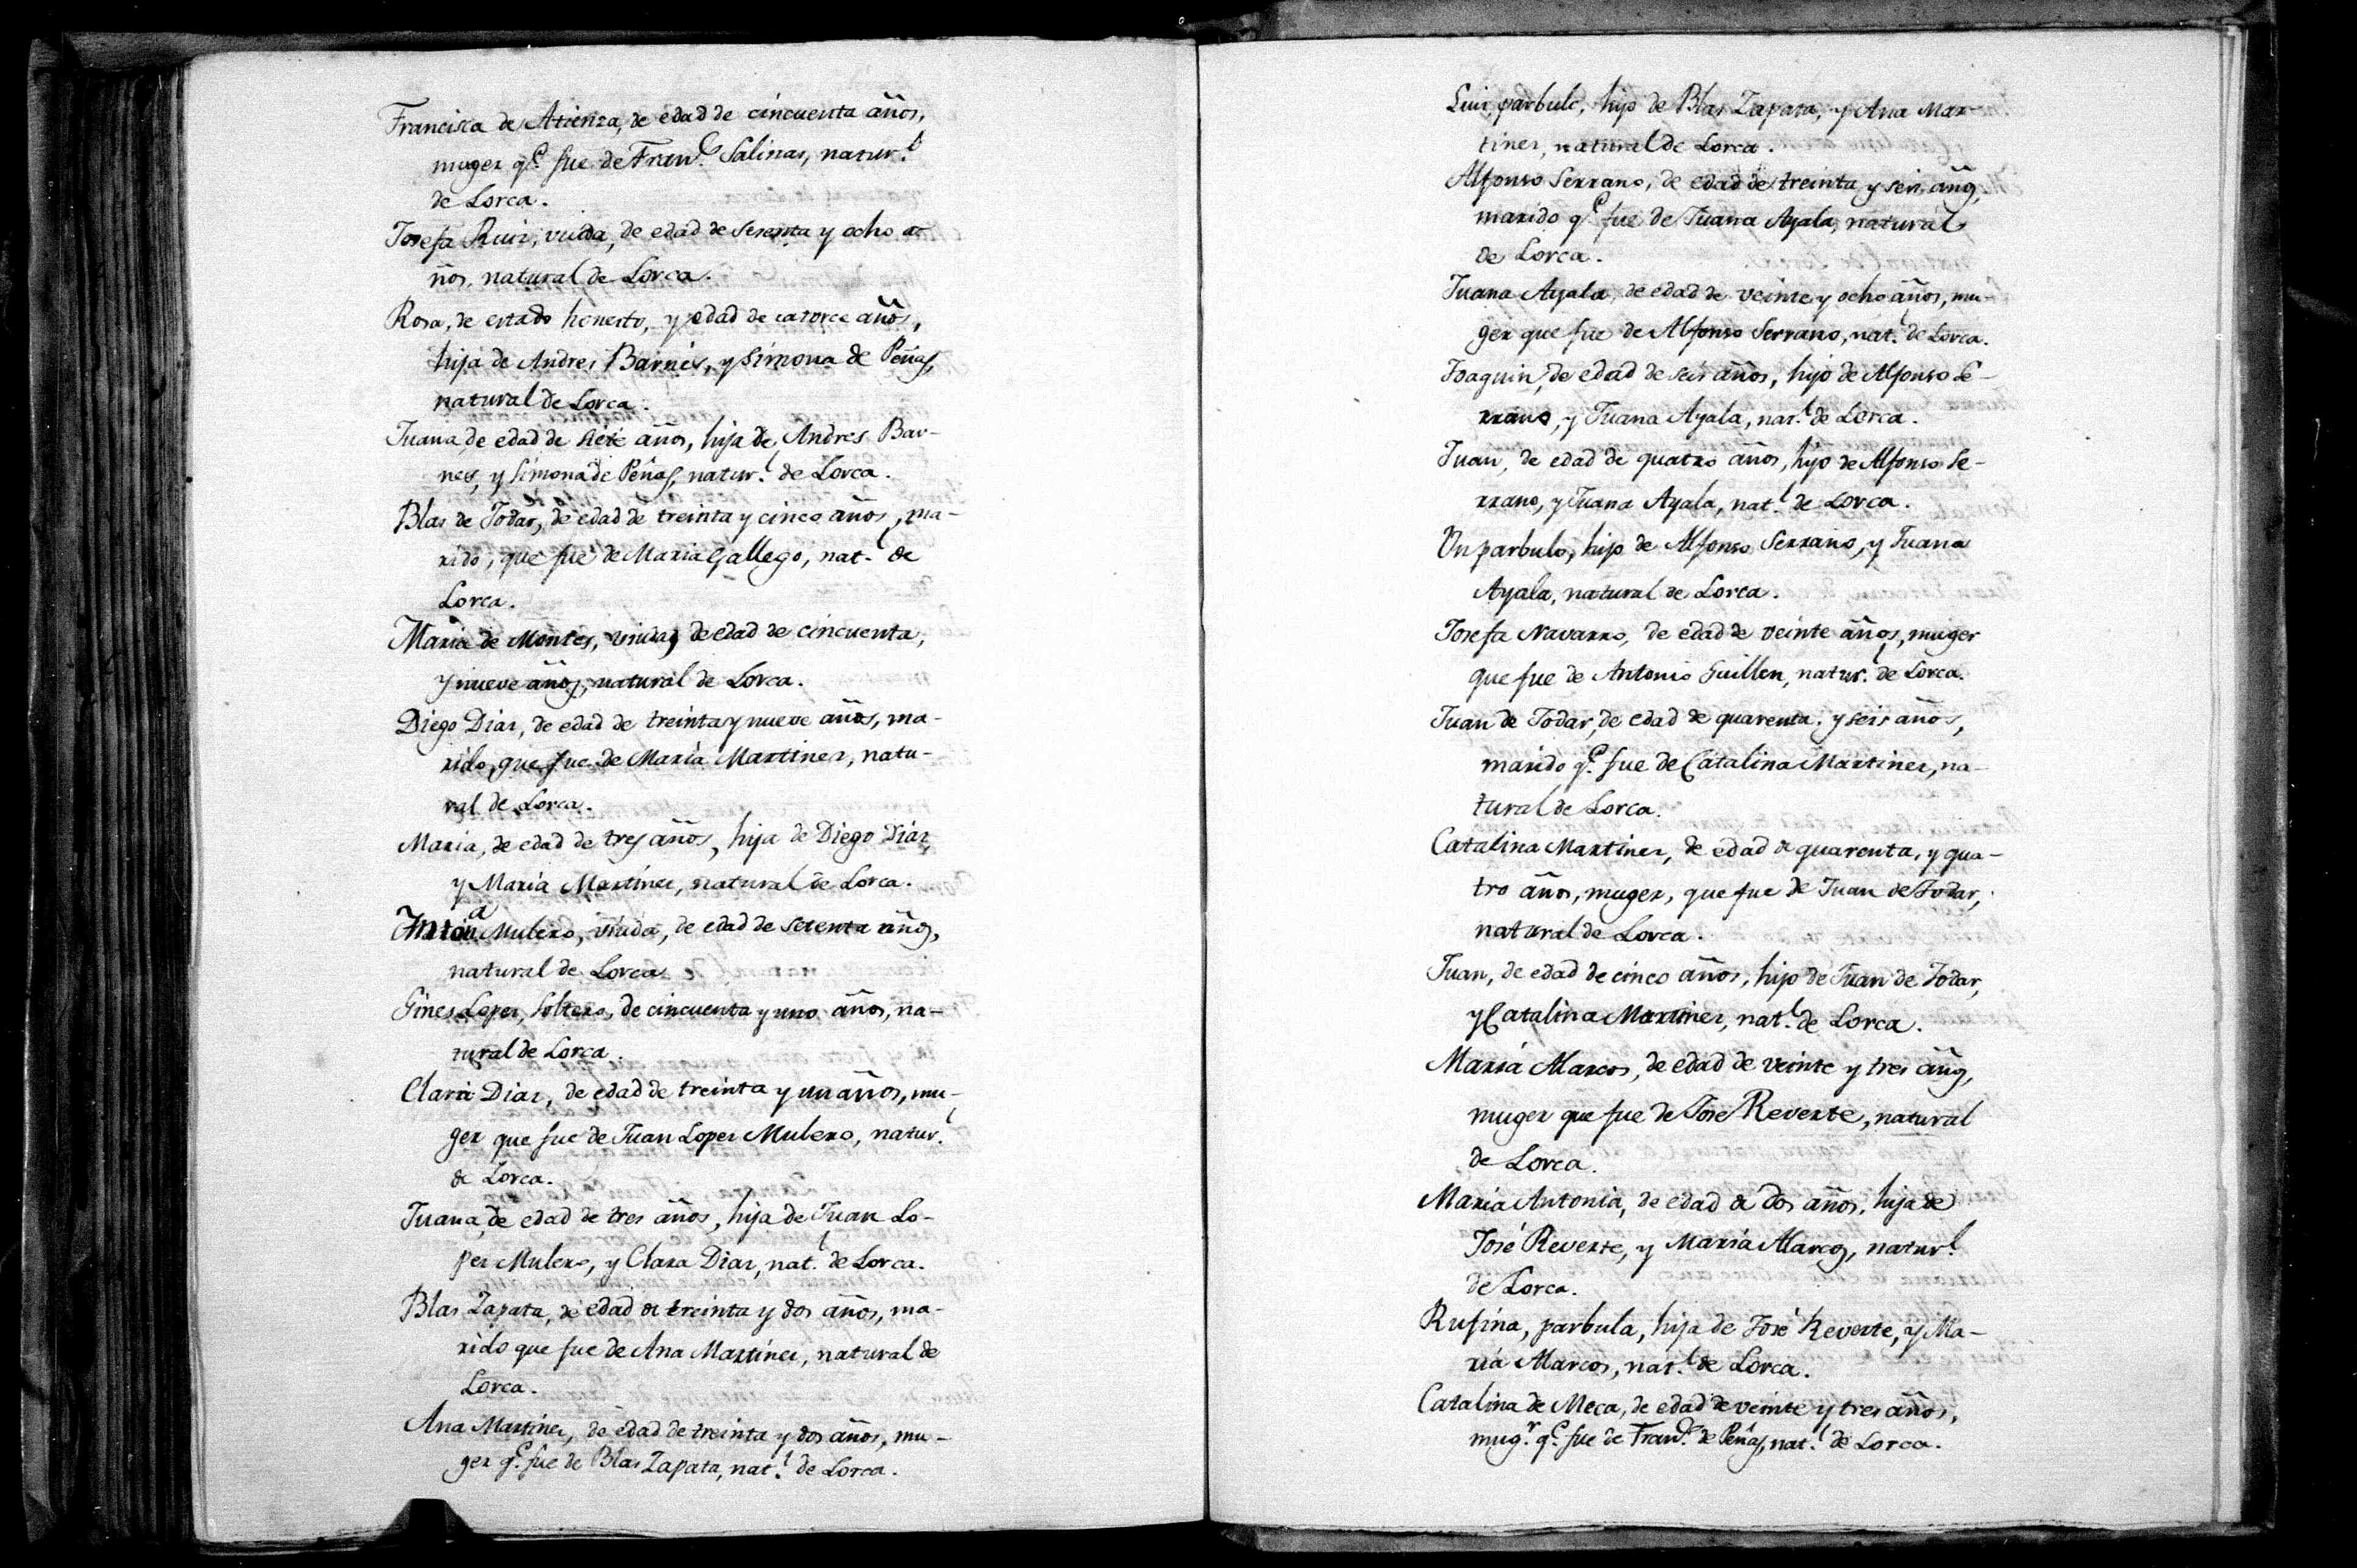 Francisca de Atienza, de edad de cincuenta años,
muger q.e fue de Fran.co Salinas, natur.l
de Lorca.
Josefa Ruiz, viuda, de edad de sesenta y ocho a-
ños, natural de Lorca.
Rosa, de estado honesto, y edad de catorce años,
hija de Andres Barnés, y Simona de Peñas,
natural de Lorca.
Juana, de edad de siete años, hija de Andres Bar-
nes, y Simona de Peñas, natur.l de Lorca.
Blas de Todar, de edad de treinta y cinco años, ma-
rido, que fue de Maria Gallego, nat.l de
Lorca.
Maria de Montes, viuda, de edad de cincuenta,
y nueve años, natural de Lorca.
Diego Diaz, de edad de treinta y nueve años, ma-
rido, que fue de María Martinez, natu-
ral de Lorca.
Maria, de edad de tres años, hija de Diego Diaz,
y María Martínez, natural de Lorca.
Antonia Mulero, viuda, de edad de setenta años,
natural de Lorca
Gines Lopez, soltero, de cincuenta y uno años, na-
tural de Lorca.
Clara Diaz, de edad de treinta y un años, mu-
ger que fue de Juan Lopez Mulero, natur.l
de Lorca.
Juana, de edad de tres años, hija de Juan Lo-
pez Mulero, y Clara Diaz, nat.l de Lorca.
Blas Zapata, de edad de treinta y dos años, ma-
rido que fue de Ana Martínez, natural de
Lorca.
Ana Martínez, de edad de treinta y dos años, mu-
ger q.e fue de Blas Zapata, nat.l de Lorca.
Luis, parbulo, hijo de Blas Zapata, y Ana Mar-
tinez, natural de Lorca.
Alfonso Serrano, de edad de treinta y seis años,
marido q.e fue de Juana Ayala, natural
de Lorca.
Juana Ayala, de edad de veinte y ocho años, mu-
ger que fue de Alfonso Serrano, nat.l de Lorca.
Joaquin, de edad de seis años, hijo de Alfonso Se-
rrano, y Juana Ayala, nat.l de Lorca.
Juan, de edad de quatro años, hijo de Alfonso Se-
rrano, y Juana Ayala, nat.l de Lorca.
Un parbulo, hijo de Alfonso Serrano, y Juana
Ayala, natural de Lorca.
Josefa Navarro, de edad de veinte años, muger
que fue de Antonio Guillen, natur.l de Lorca.
Juan de Todar, de edad de quarenta, y seis años,
marido q.e fue de Catalina Martinez, na-
tural de Lorca.
Catalina Martinez, de edad de quarenta, y qua-
tro años, muger, que fue de Juan de Todar,
natural de Lorca.
Juan, de edad de cinco años, hijo de Juan de Todar,
y Catalina Martinez, nat.l de Lorca.
María Marcos, de edad de veinte y tres años,
muger que fue de Jose Reverte, natural
de Lorca.
María Antonia, de edad de dos años, hija de
José Reverte, y María Marcos, natur.l
de Lorca.
Rufina, parbula, hija de José Reverte, y Ma-
ría Marcos, nat.l de Lorca.
Catalina de Meca, de edad de veinte y tres años,
mug.r q.e fue de Fran.co de Peñas, nat.l de Lorca.